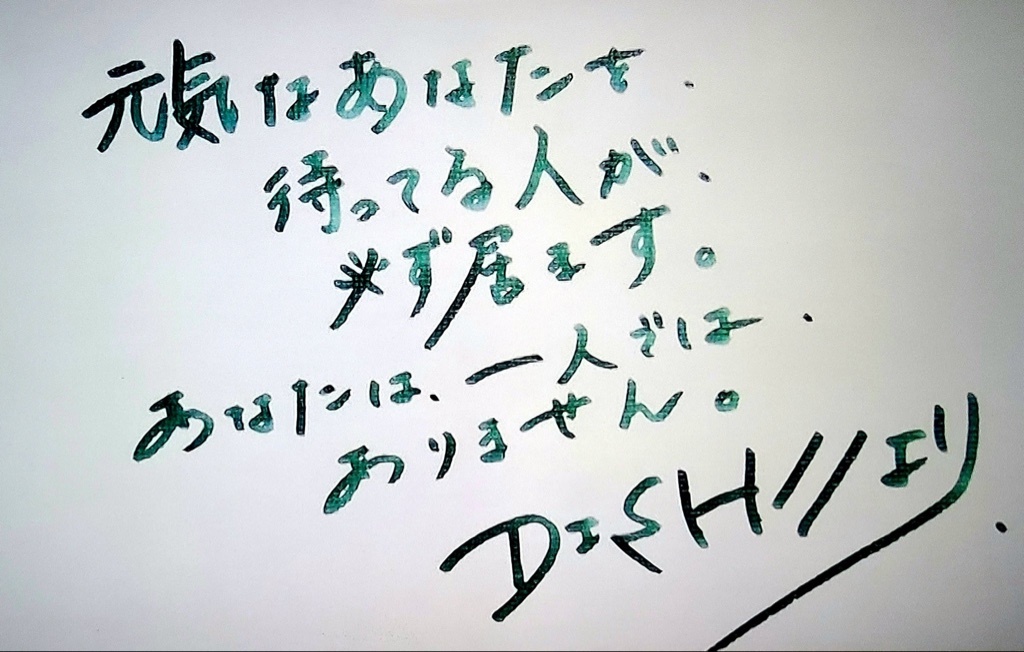 元気なあなたを
待ってる人が
必ず居ます。
あなたは、一人では
ありません。
DISH//エリ